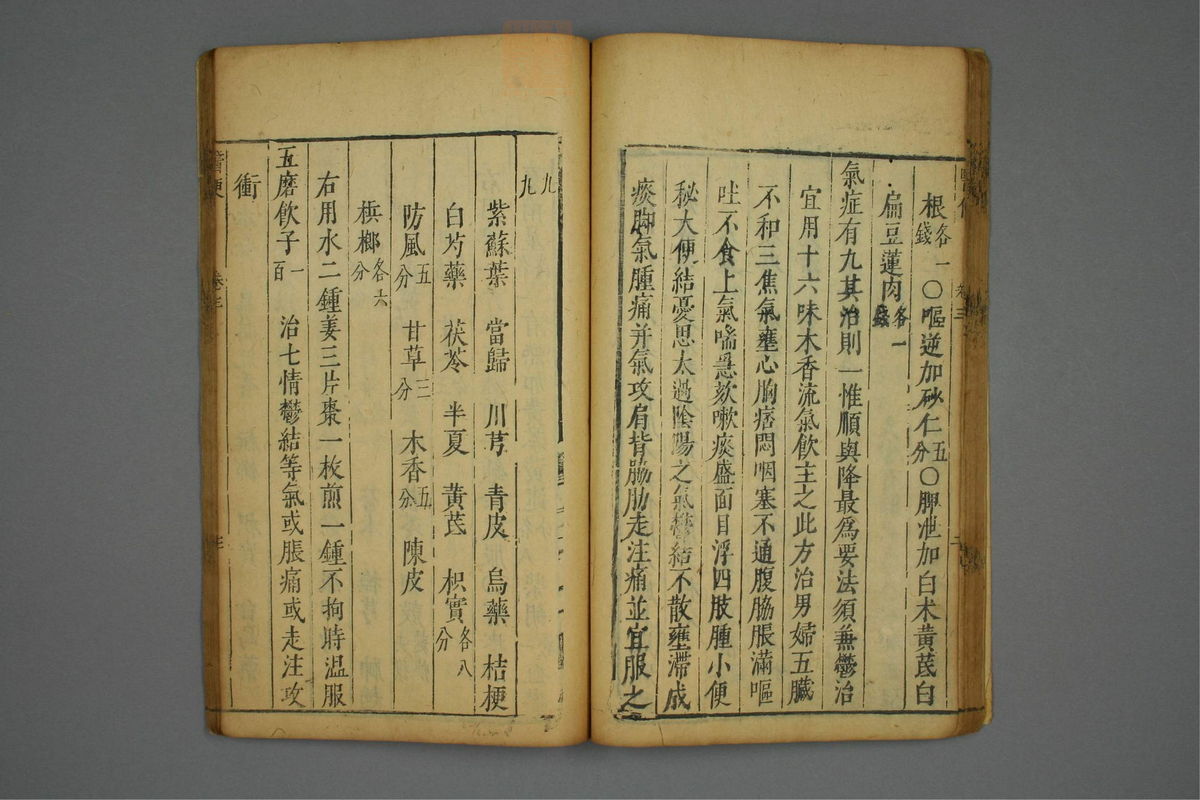 根各一錢〇嘔逆加砂仁五分〇脾泄加白术黄芪白
扁豆蓮肉各一錢
氣症有九其治則一惟順與降最爲要法須兼鬱治
宜用十六味木香流氣飲主之此方治男婦五臟
不和三焦氣壅心胸痞悶咽塞不通腹脇脹滿嘔
吐不食上氣喘急欬嗽痰盛面目浮四肢腫小便
秘大便結憂思太過陰陽之氣鬱結不散壅滯成
痰脚氣腫痛并氣攻肩背脇肋走注痛並宜服之
九九
紫蘇葉 當歸 川芎 青皮 烏藥 桔梗
白芍藥 茯苓 半夏 黄芪 枳實各八分
防風五分 甘草三分 木香五分 陳皮
梹榔各六分
右用水二鍾姜三片棗一枚煎一鍾不拘時温服
五磨飲子一百 治七情鬱結等氣或脹痛或走注攻
衝